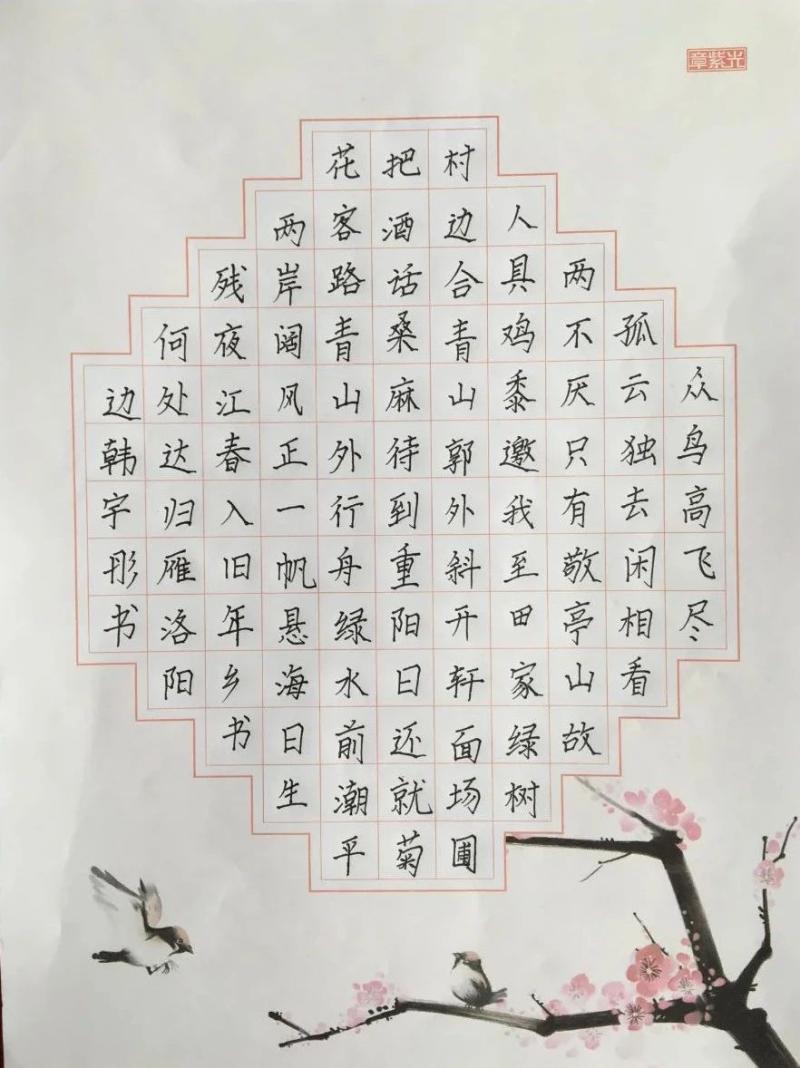 章紫光
众鸟高飞尽
孤云独去闲相看
两不厌只有敬亭山故
人具鸡黍邀我至田家绿树
村边合青山郭外斜开轩面场圃
把酒话桑麻待到重阳日还就菊
花客路青山外行舟绿水前潮平
两岸阔风正一帆悬海日生
残夜江春入旧年乡书
何处达归雁洛阳
边韩宇彤书